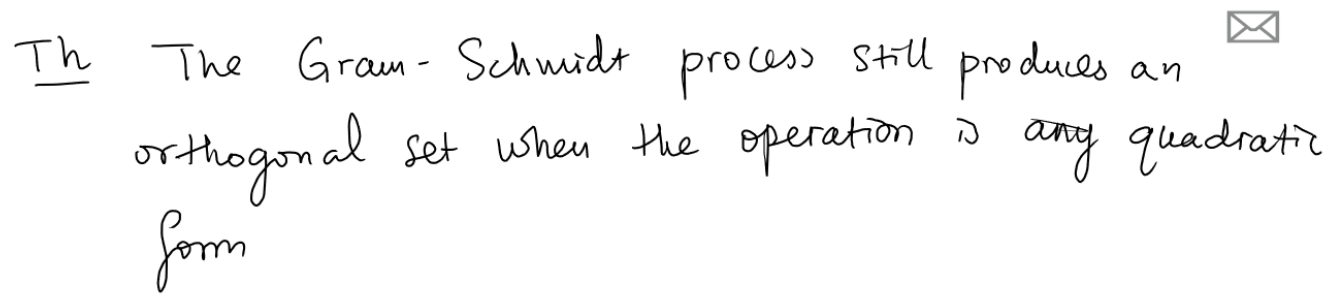 Th The Gram-Schmidt process still produces an
orthogonal set when the operation is any quadratic
form